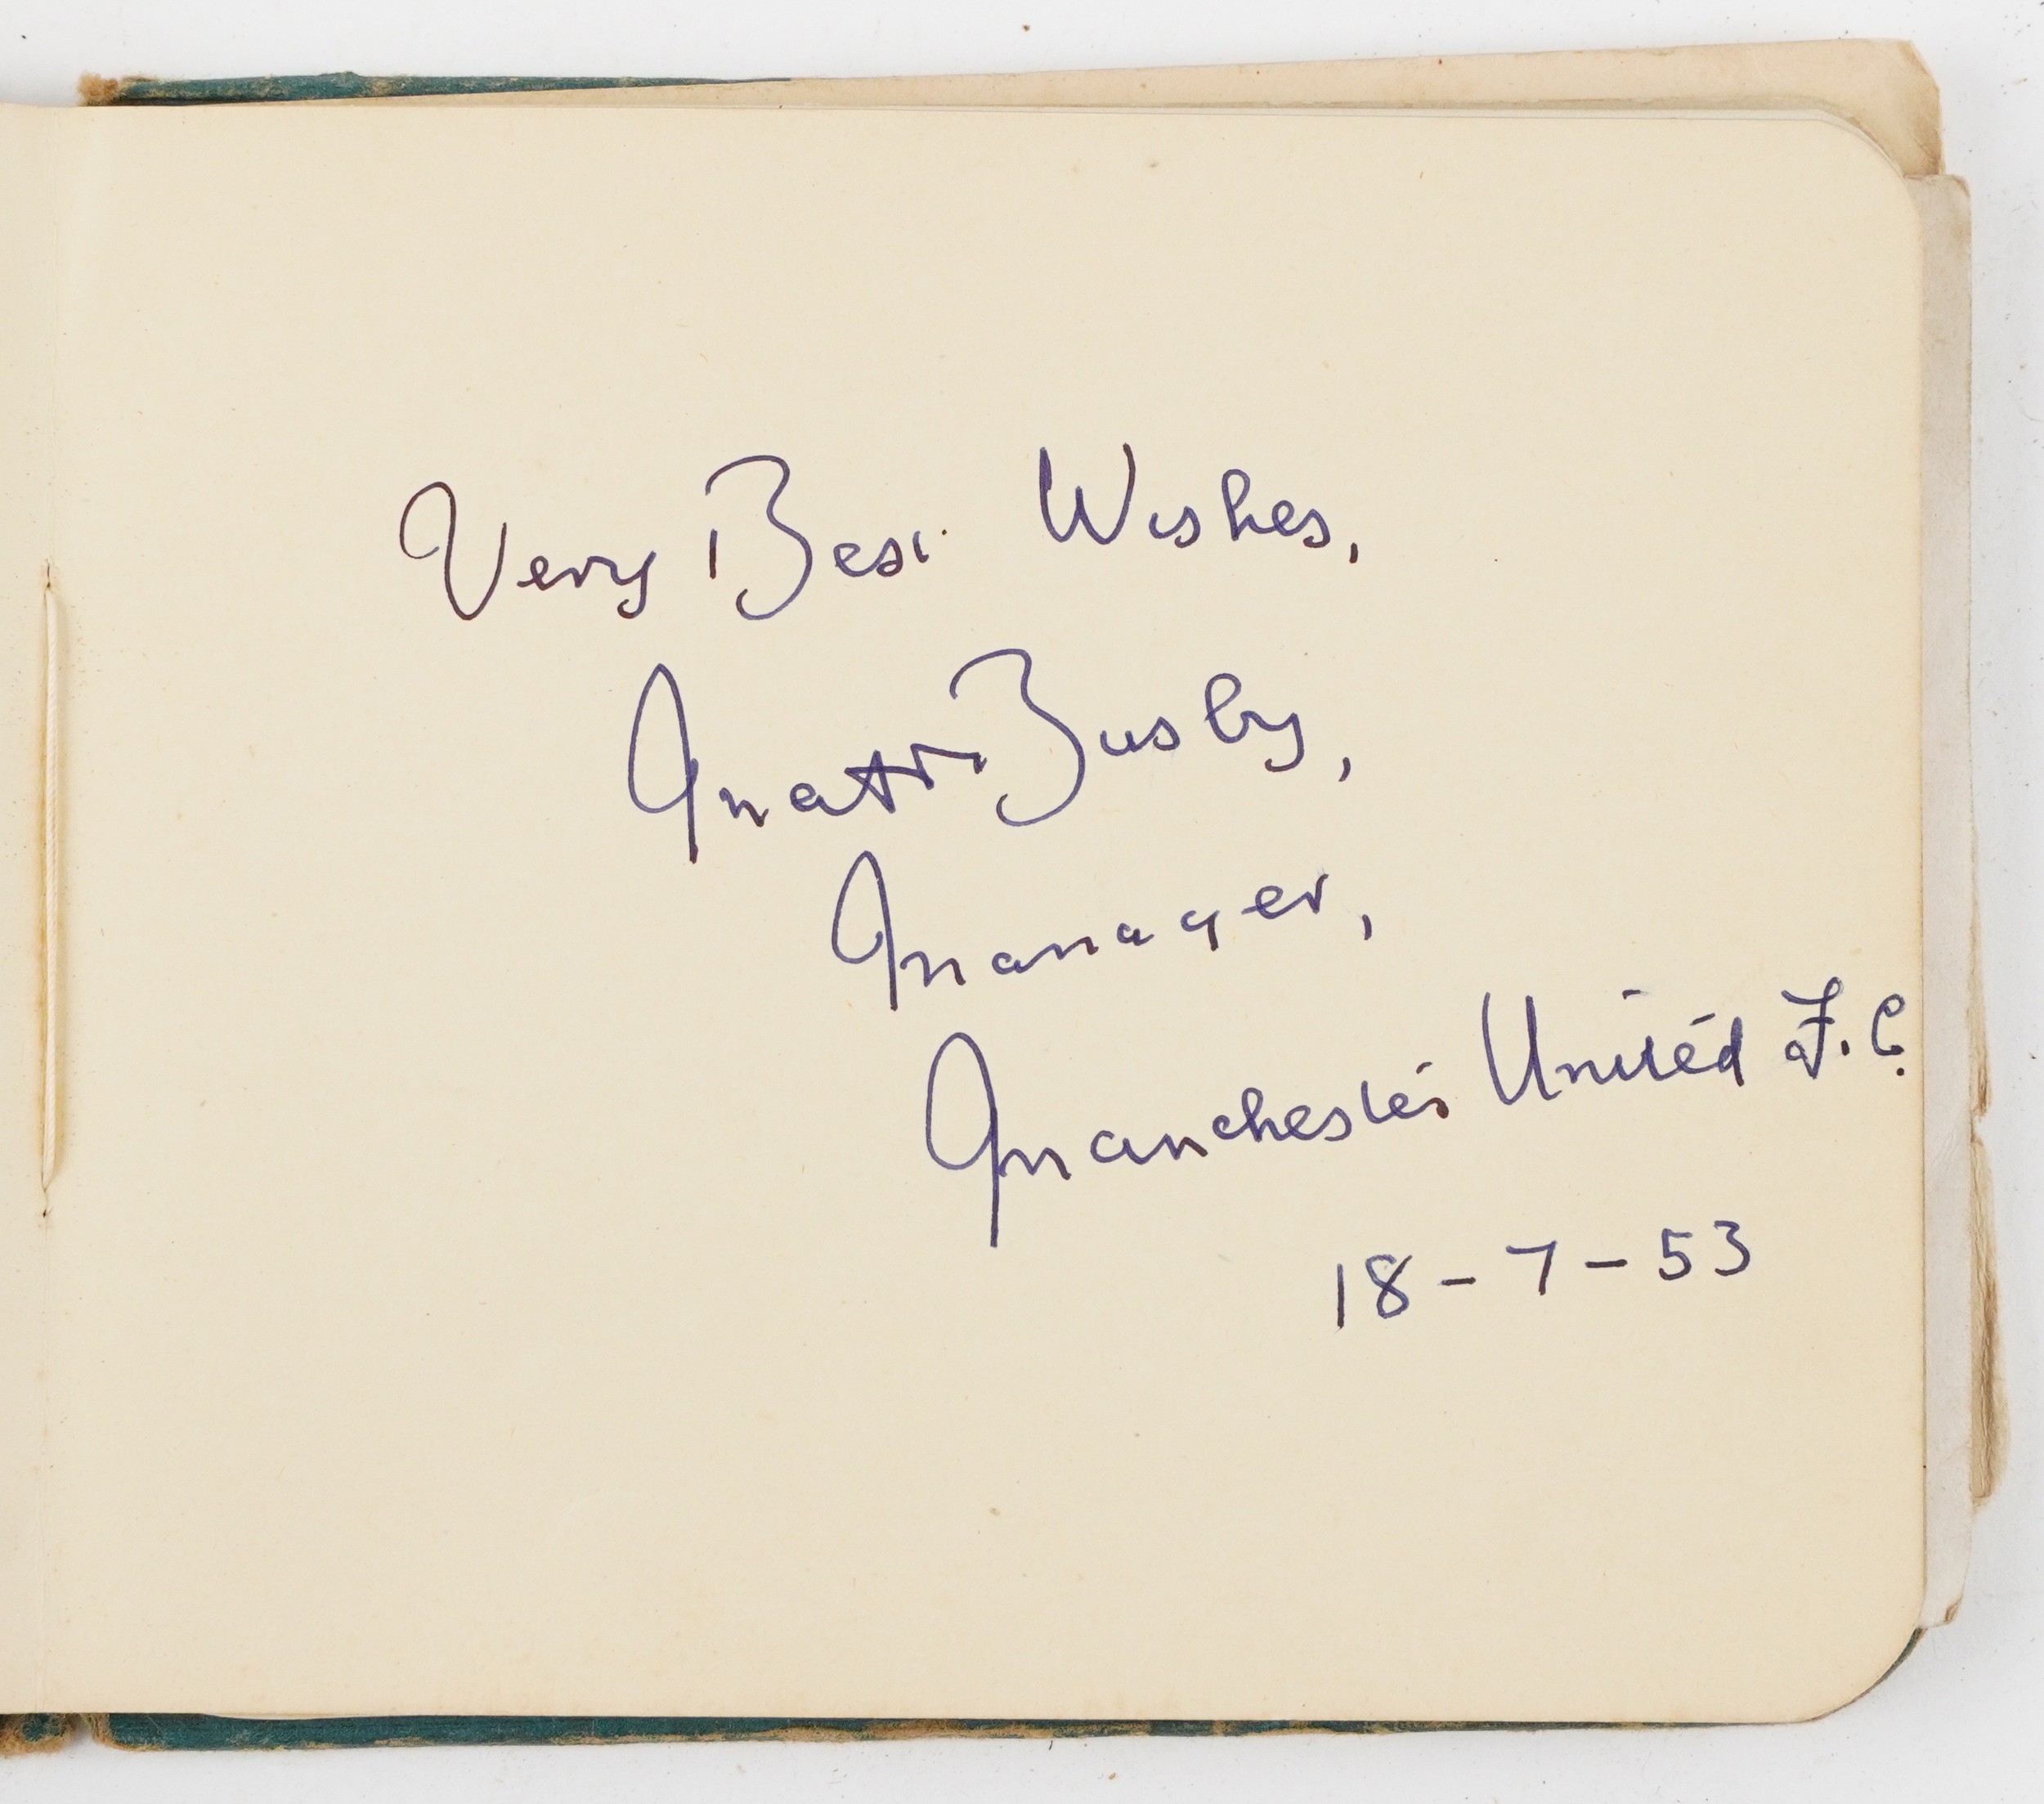 Very Best Wishes,
Matt Busby,
Manager,
Manchester United F.C.
18-7-53